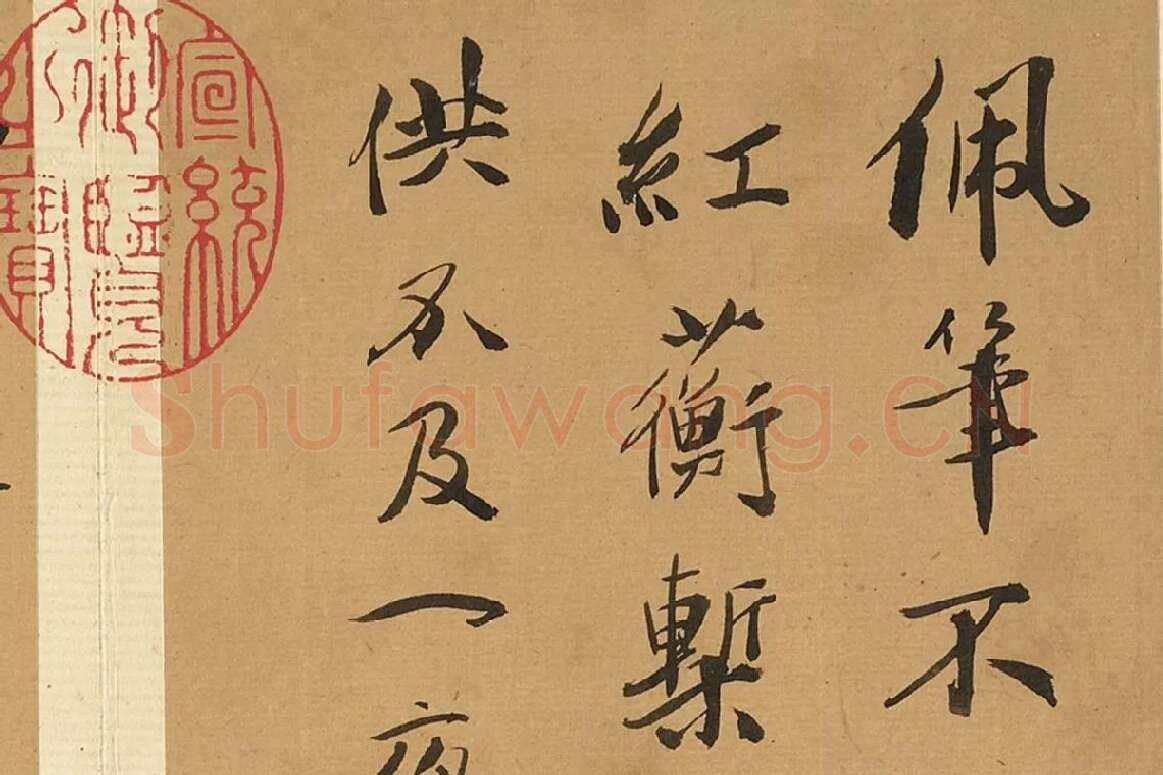 佩筆不
紅蘅槧
供不及一夜
宣統御覽之寶
Shufawang.CN